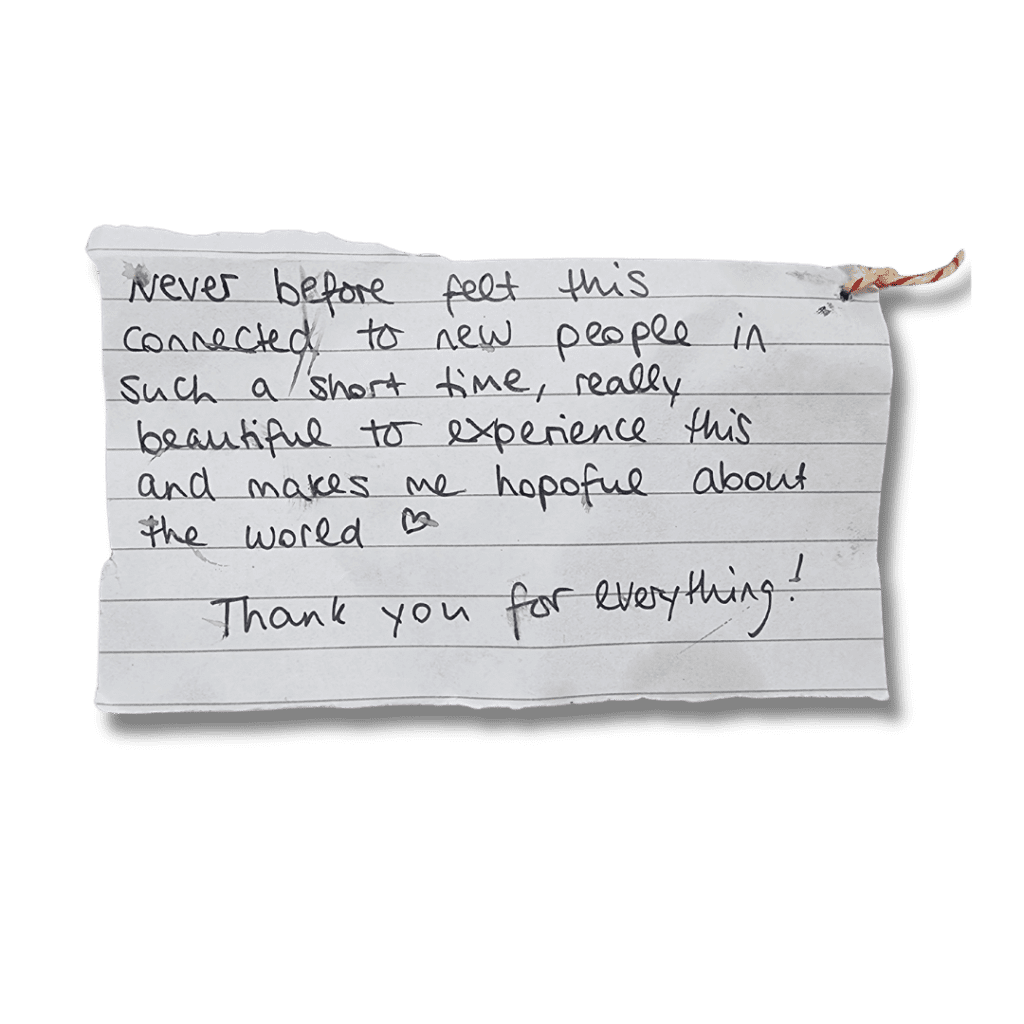 Never before felt this
connected to new people in
such a short time, really
beautiful to experience this
and makes me hopoful about
the world ♡
Thank you for everything!